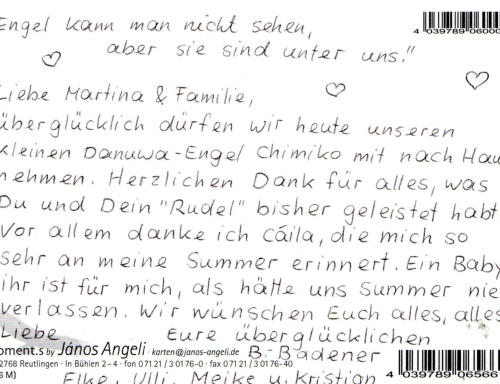 Engel kann man nicht sehen,
aber sie sind unter uns."
4 039789 06000
Liebe Martina & Familie,
überglücklich dürfen wir heute unseren
kleinen Danuwa-Engel Chimiko mit nach Hau
nehmen. Herzlichen Dank für alles, was
Du und Dein "Rudel" bisher geleistet habt
Vor allem danke ich Cáila, die mich so
sehr an meine Summer erinnert. Ein Baby
ihr ist für mich, als hätte uns Summer nie
verlassen. Wir wünschen Euch alles, alles
Liebe Eure überglücklichen
oment.s by János Angeli · karten@janos-angeli.de
B. Badener
2768 Reutlingen · In Bühlen 2–4 · fon 0 71 21 / 3 01 76-0 · fax 0 71 21 / 3 01 76-40
6 M)
4 039789 06566
Elke, Ulli, Meike u. Kristian